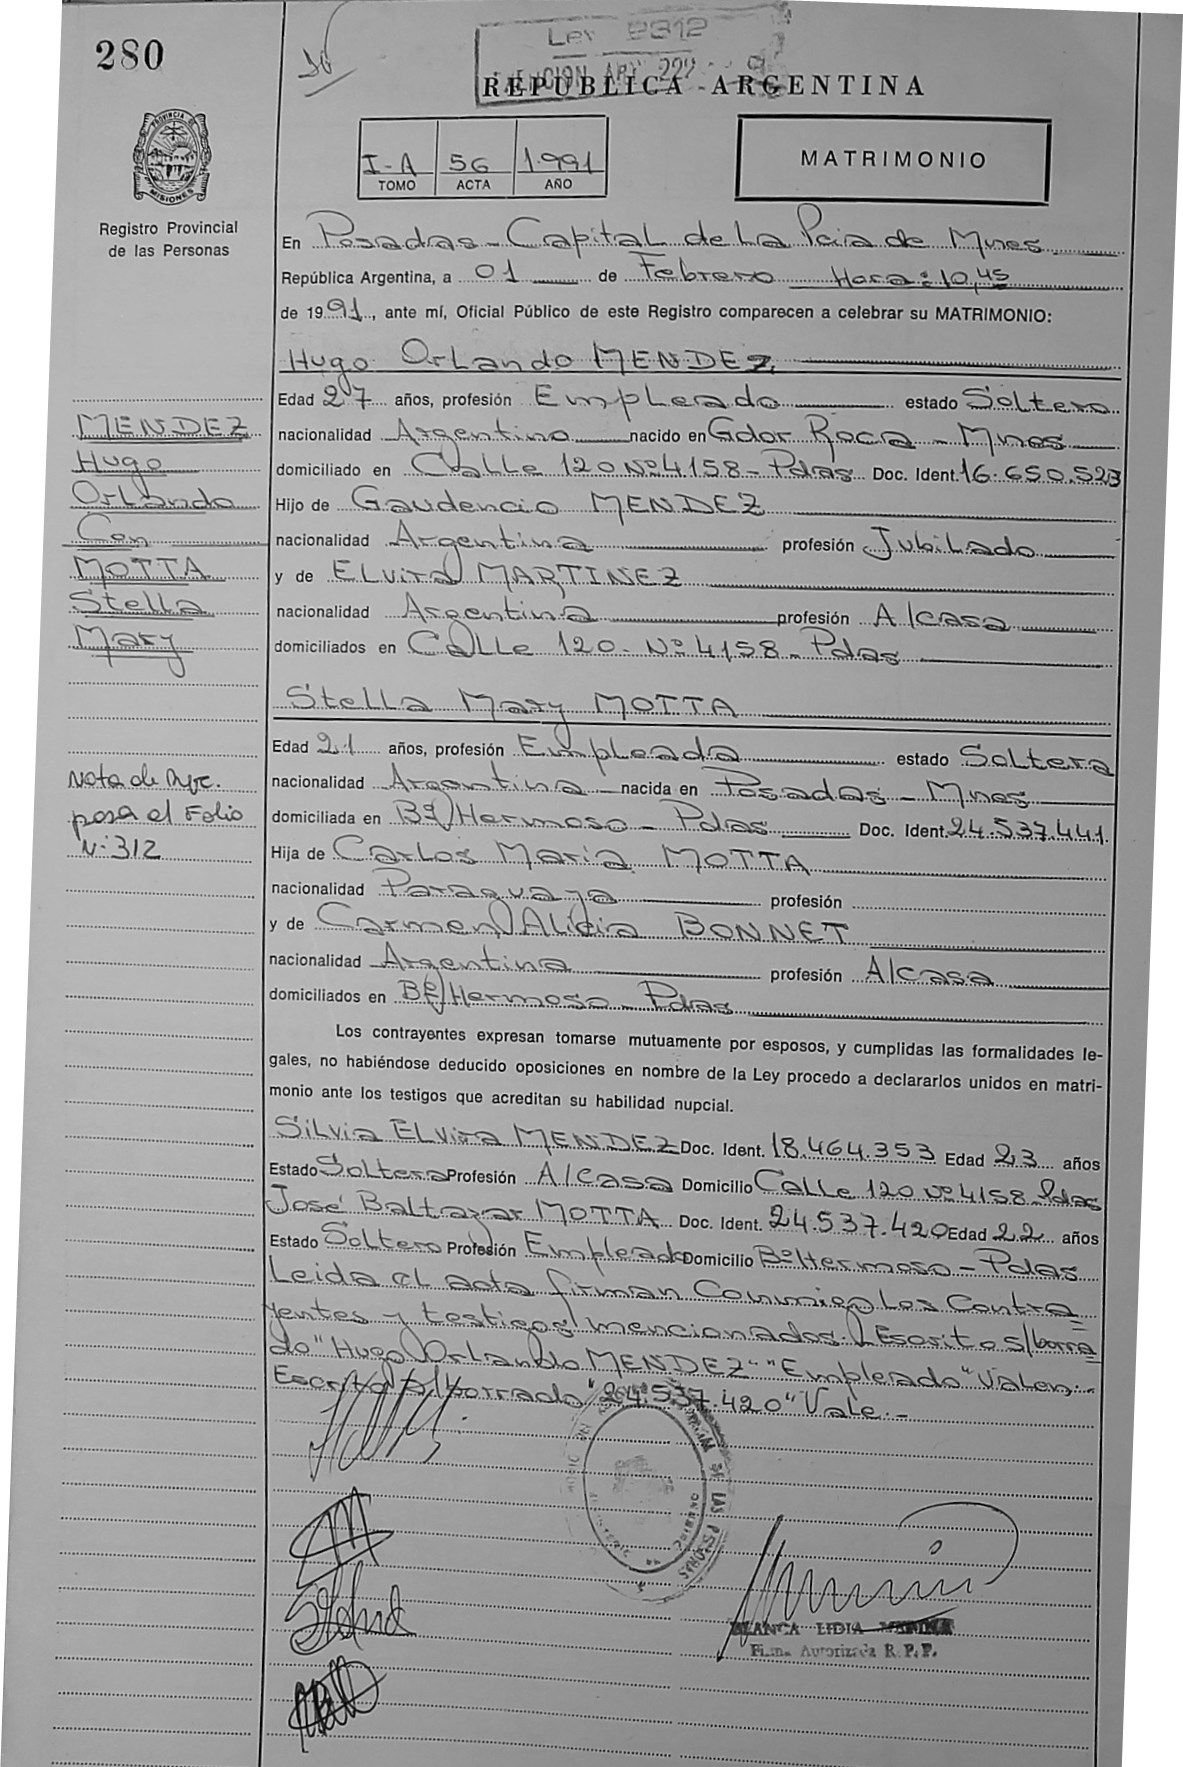 280
Ley 2312
REPUBLICA ARGENTINA
PROVINCIA DE
MISIONES
I-A 56 1.991
TOMO ACTA AÑO
MATRIMONIO
Registro Provincial
de las Personas
En Posadas - Capital de La Pcia de Mnes
República Argentina, a 01 de Febrero Hora: 10,45
de 1991, ante mí, Oficial Público de este Registro comparecen a celebrar su MATRIMONIO:
Hugo Orlando MENDEZ
Edad 27 años, profesión Empleado estado Soltero
nacionalidad Argentino nacido en Gdor Roca - Mnes
domiciliado en Calle 120 Nº 4158 - Pdas Doc. Ident. 16.650.523
Hijo de Gaudencio MENDEZ
nacionalidad Argentina profesión Jubilado
y de ELvira MARTINEZ
nacionalidad Argentina profesión A/casa
domiciliados en Calle 120 - Nº 4158 - Pdas
Stella Mary MOTTA
Edad 21 años, profesión Empleada estado Soltera
nacionalidad Argentina nacida en Posadas - Mnes
domiciliada en Bº Hermoso - Pdas Doc. Ident. 24.537.441
Hija de Carlos María MOTTA
nacionalidad Paraguaya profesión
y de Carmen Alicia BONNET
nacionalidad Argentina profesión A/casa
domiciliados en Bº Hermoso - Pdas
MENDEZ
Hugo
Orlando
Con
MOTTA
Stella
Mary
Nota de
pasa al Folio
Nº 312
Los contrayentes expresan tomarse mutuamente por esposos, y cumplidas las formalidades le-
gales, no habiéndose deducido oposiciones en nombre de la Ley procedo a declararlos unidos en matri-
monio ante los testigos que acreditan su habilidad nupcial.
Silvia ELvira MENDEZ Doc. Ident. 18.464.353 Edad 23 años
Estado Soltera Profesión A/casa Domicilio Calle 120 Nº 4158 Pdas
José Baltazar MOTTA Doc. Ident. 24.537.420 Edad 22 años
Estado Soltero Profesión Empleado Domicilio Bº Hermoso - Pdas
Leida el acta firman Conmigo Los Contra
yentes y testigos mencionados. Escrito s/borra
do "Hugo Orlando MENDEZ" "Empleado" Valen.
Escrito s/borrado "24.537.420" Vale.-
DE LAS PERSONAS
BLANCA LIDIA
Autorizada R.P.P.